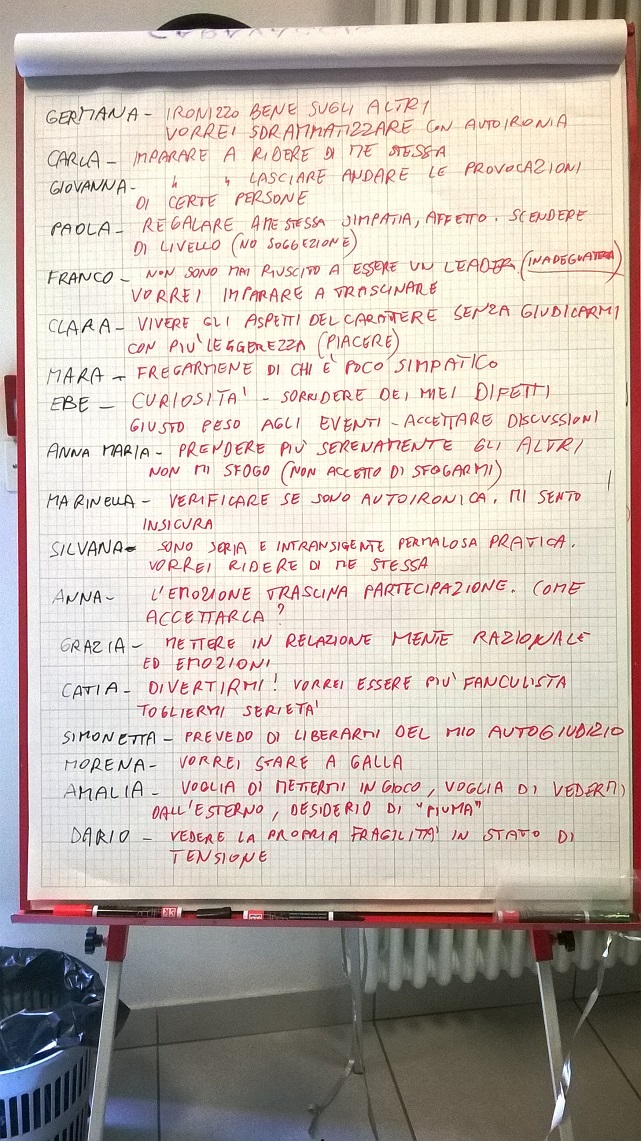 GERMANA - IRONIZZO BENE SUGLI ALTRI
VORREI SDRAMMATIZZARE CON AUTOIRONIA
CARLA - IMPARARE A RIDERE DI ME STESSA
GIOVANNA - " " LASCIARE ANDARE LE PROVOCAZIONI
DI CERTE PERSONE
PAOLA - REGALARE A ME STESSA SIMPATIA, AFFETTO. SCENDERE
DI LIVELLO (NO SOGGEZIONE)
FRANCO - NON SONO MAI RIUSCITO A ESSERE UN LEADER (INADEGUATEZZA)
VORREI IMPARARE A TRASCINARE
CLARA - VIVERE GLI ASPETTI DEL CARATTERE SENZA GIUDICARMI
CON PIU' LEGGEREZZA (PIACERE)
MARA - FREGARMENE DI CHI E' POCO SIMPATICO
EBE - CURIOSITA' - SORRIDERE DEI MIEI DIFETTI
GIUSTO PESO AGLI EVENTI - ACCETTARE DISCUSSIONI
ANNA MARIA - PRENDERE PIU' SERENAMENTE GLI ALTRI
NON MI SFOGO (NON ACCETTO DI SFOGARMI)
MARINELLA - VERIFICARE SE SONO AUTOIRONICA. MI SENTO
INSICURA
SILVANA - SONO SERIA E INTRANSIGENTE PERMALOSA PRATICA.
VORREI RIDERE DI ME STESSA
ANNA - L'EMOZIONE TRASCINA PARTECIPAZIONE. COME
ACCETTARLA?
GRAZIA - METTERE IN RELAZIONE MENTE RAZIONALE
ED EMOZIONI
CATIA - DIVERTIRMI! VORREI ESSERE PIU' FANCULISTA
TOGLIERMI SERIETA'
SIMONETTA - PREVEDO DI LIBERARMI DEL MIO AUTOGIUDIZIO
MORENA - VORREI STARE A GALLA
AMALIA - VOGLIA DI METTERMI IN GIOCO, VOGLIA DI VEDERMI
DALL'ESTERNO, DESIDERIO DI "PIUMA"
DARIO - VEDERE LA PROPRIA FRAGILITA' IN STATO DI
TENSIONE